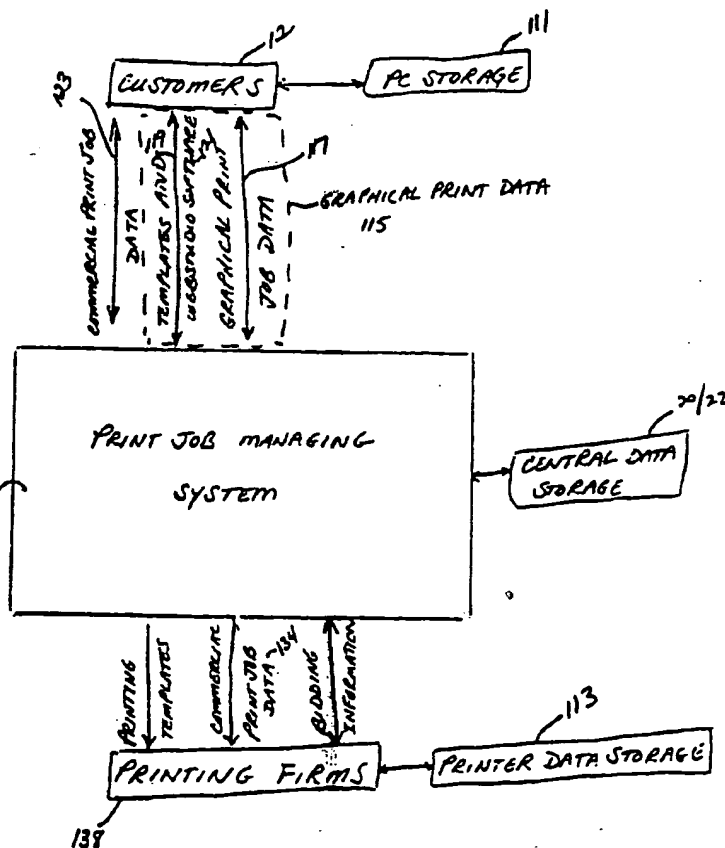 12
111
CUSTOMERS
PC STORAGE
123
COMMERCIAL PRINT JOB
DATA
119
TEMPLATES AND
SOFTWARE
GRAPHICAL PRINT
JOB DATA
117
GRAPHICAL PRINT DATA
115
PRINT JOB MANAGING
SYSTEM
20/22
CENTRAL DATA
STORAGE
PRINTING
TEMPLATES
COMMERCIAL
PRINT JOB
DATA 134
BIDDING
INFORMATION
113
PRINTING FIRMS
PRINTER DATA STORAGE
138